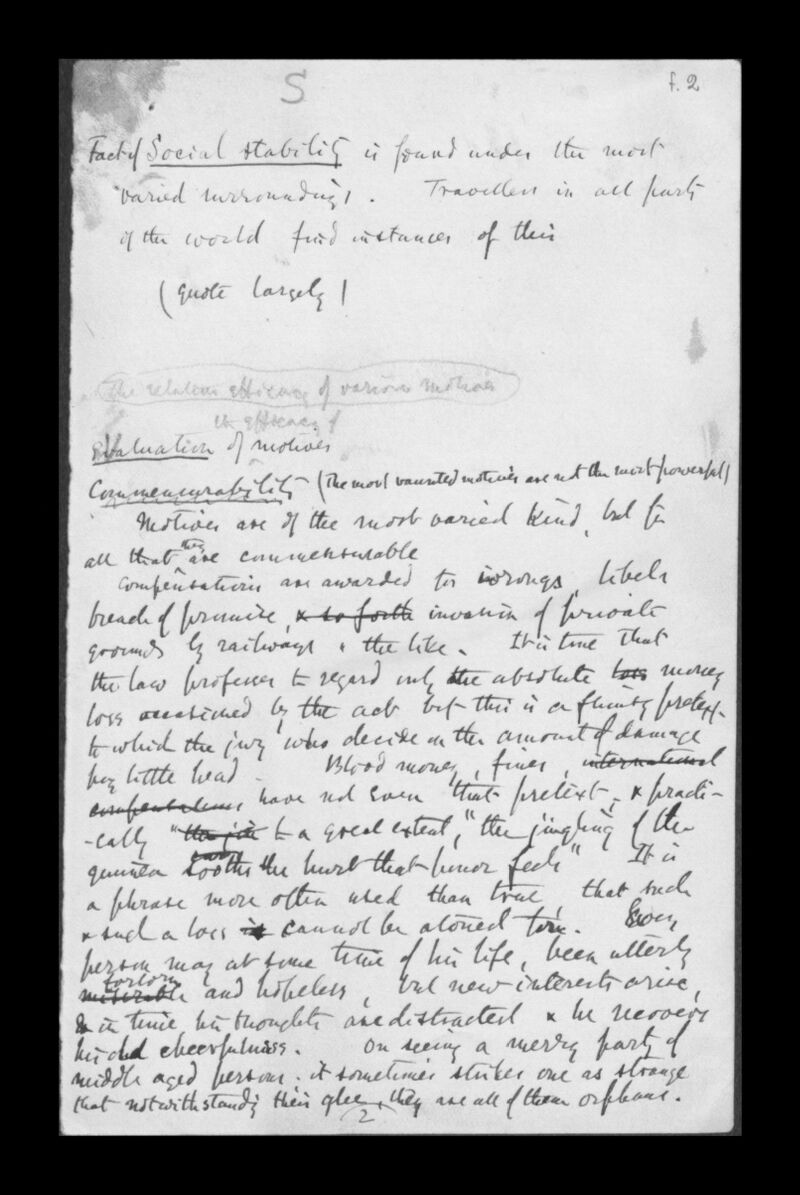 S
f. 2
Fact of Social stability is found under the most
varied surroundings. Travellers in all parts
of the world find instances of this
(quote largely)
The relative efficacy of various motives
the efficacy of
Evaluation of motives
Commensurability (The most vaunted motives are not the most powerful)
Motives are of the most varied kind, but for
all that they are commensurable
Compensations are awarded for wrongs, libels
breach of promise, & so forth invasion of private
grounds by railways & the like. It is true that
the law professes to regard only the absolute loss money
loss occasioned by the act but this is a flimsy pretext
to which the jury who decide on the amount of damage
pay little heed. Blood money, fines, international
compensations have not even that pretext, & practi-
-cally "the jin to a great extent, "the jingling of the
guinea soothes the hurt that honor feels" It is
a phrase more often used than true, that such
& such a loss is cannot be atoned for. Every
person may at some time of his life, been utterly
miserable forlorn and hopeless, but new interests arise,
& in time his thoughts are distracted & he recovers
his old cheerfulness. On seeing a merry party of
middle aged persons. it sometimes strikes one as strange
that notwithstandg their glee, they are all of them orphans.
2